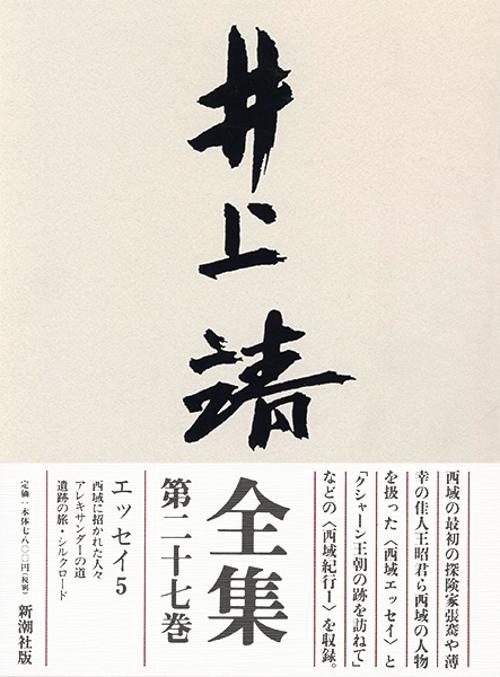 井上靖
西域の最初の探険家張騫や薄
幸の佳人王昭君ら西域の人物
を扱った〈西域エッセイ〉と
「クシャーン王朝の跡を訪ねて」
などの〈西域紀行Ⅰ〉を収録。
全集
第二十七巻
エッセイ5
西域に招かれた人々
アレキサンダーの道
遺跡の旅・シルクロード
定価：本体七八〇〇円（税別）
新潮社版